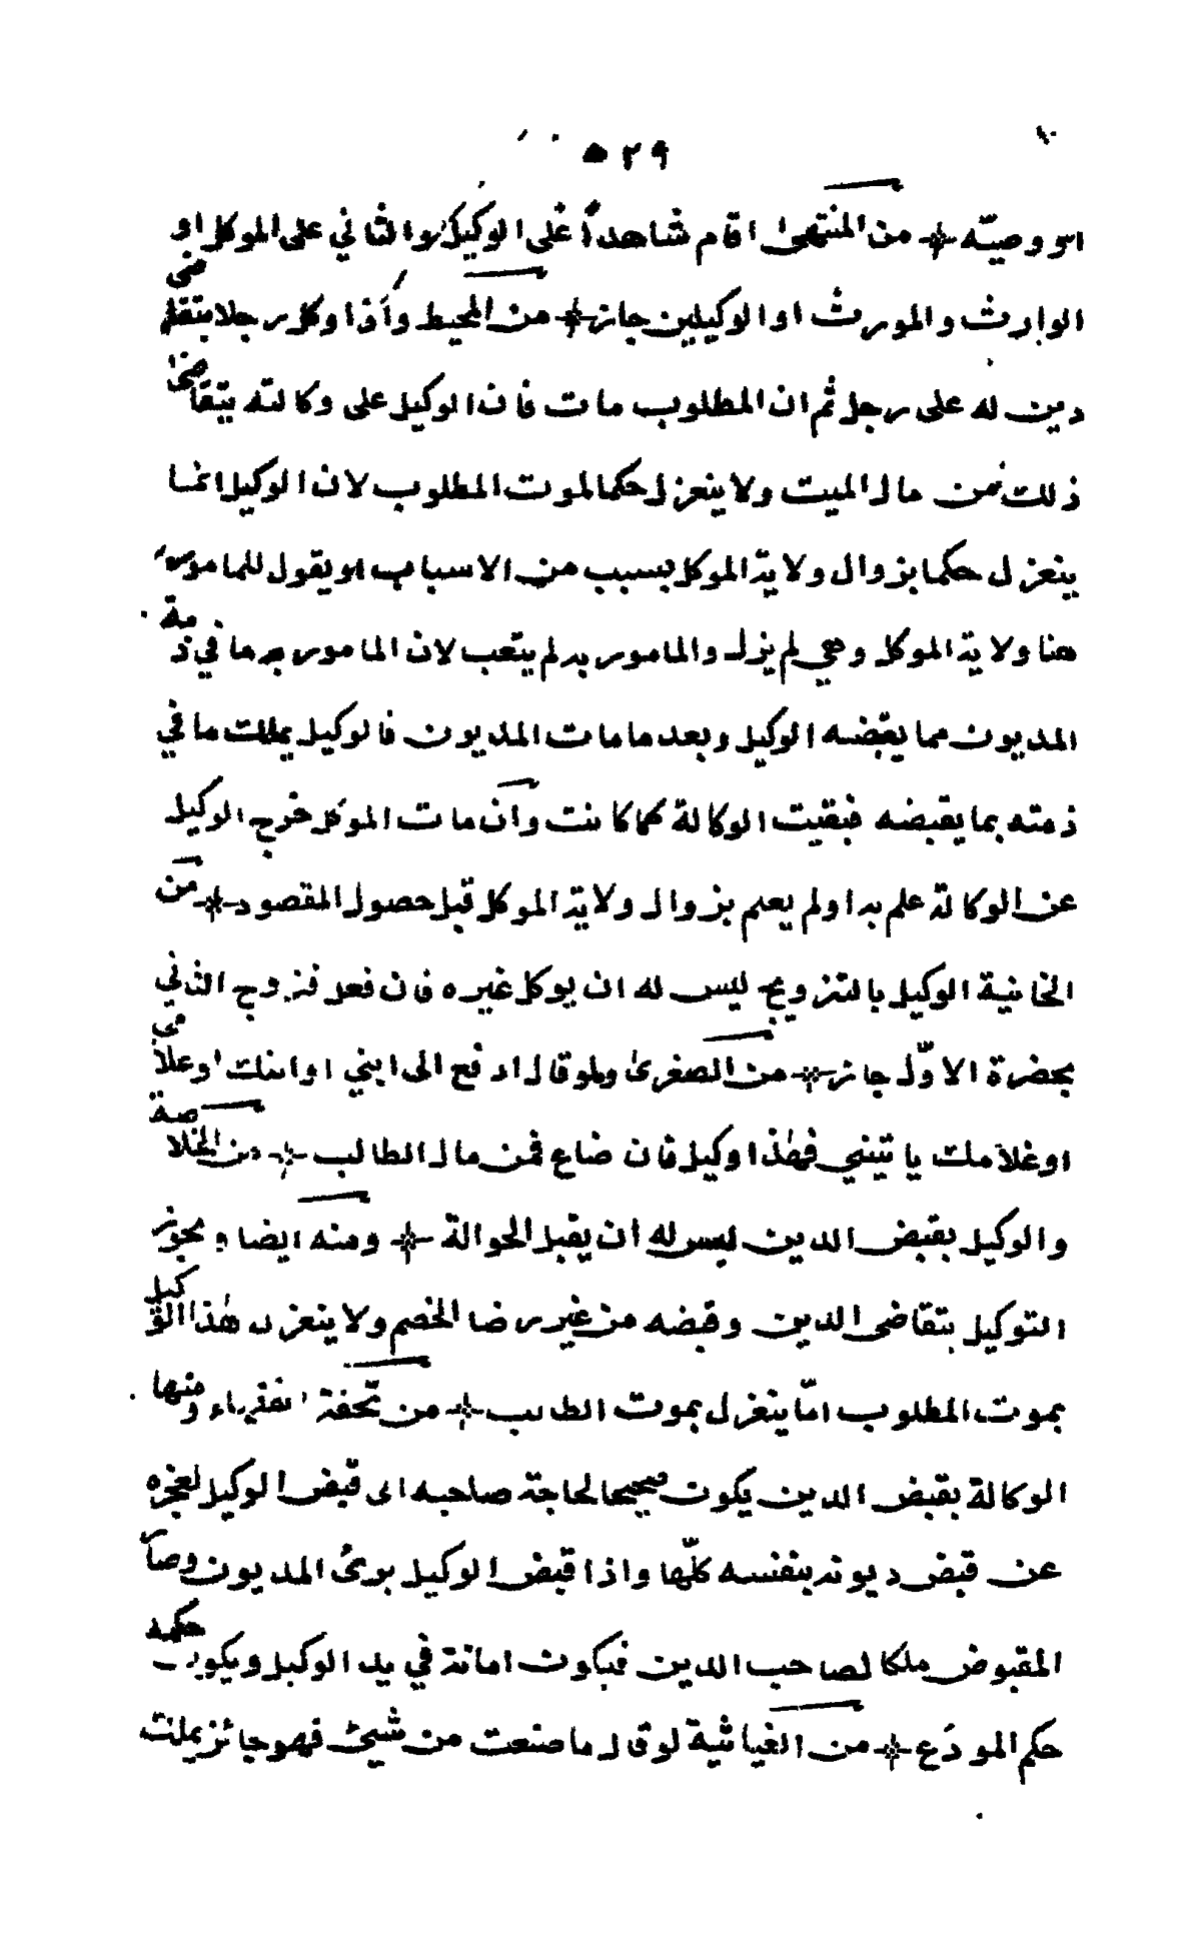 ٥٢٩
او وصيّه من المنتهى اقام شاهداً على الوكيل والثاني على الموكل او
الوارث والمورث او الوكيلين جاز من المحيط وأذا وكل رجلا بتقاضى
دين له على رجل ثم ان المطلوب مات فان الوكيل على وكالته يتقاضى
ذلك من مال الميت ولا ينعزل حكما لموت المطلوب لان الوكيل انما
ينعزل حكما بزوال ولاية الموكل بسبب من الاسباب او يقول للمامور
هنا ولاية الموكل وهي لم يزل والمامور به لم يتعب لان المامور به ما في ذمة
المديون مما يقبضه الوكيل وبعد ما مات المديون فالوكيل يملك ما في
ذمته بما يقبضه فبقيت الوكالة كما كانت وان مات الموكل خرج الوكيل
عن الوكالة علم به او لم يعلم بزوال ولاية الموكل قبل حصول المقصود من
الخانية الوكيل بالتزويج ليس له ان يوكل غيره فان فعل فزوج الثاني
بحضرة الاوّل جاز من الصغرى ولو قال ادفع الى ابني او ابنك او غلامي
او غلامك ياتيني فهذا وكيل فان ضاع فمن مال الطالب من الخلاصة
والوكيل بقبض الدين ليس له ان يقبل الحوالة ومنه ايضا ويجوز
التوكيل بتقاضى الدين وقبضه من غير رضا الخصم ولا ينعزل هذا الوكيل
بموت المطلوب امّا ينعزل بموت الطالب من تحفة الفقهاء ومنها
الوكالة بقبض الدين يكون صحيحا لحاجة صاحبه الى قبض الوكيل لعجزه
عن قبض ديونه بنفسه كلّها واذا قبض الوكيل برئ المديون وصار
المقبوض ملكا لصاحب الدين فيكون امانة في يد الوكيل ويكون حكمه
حكم المودَع من الغياثية لو قال ما صنعت من شيئ فهو جائز يملك